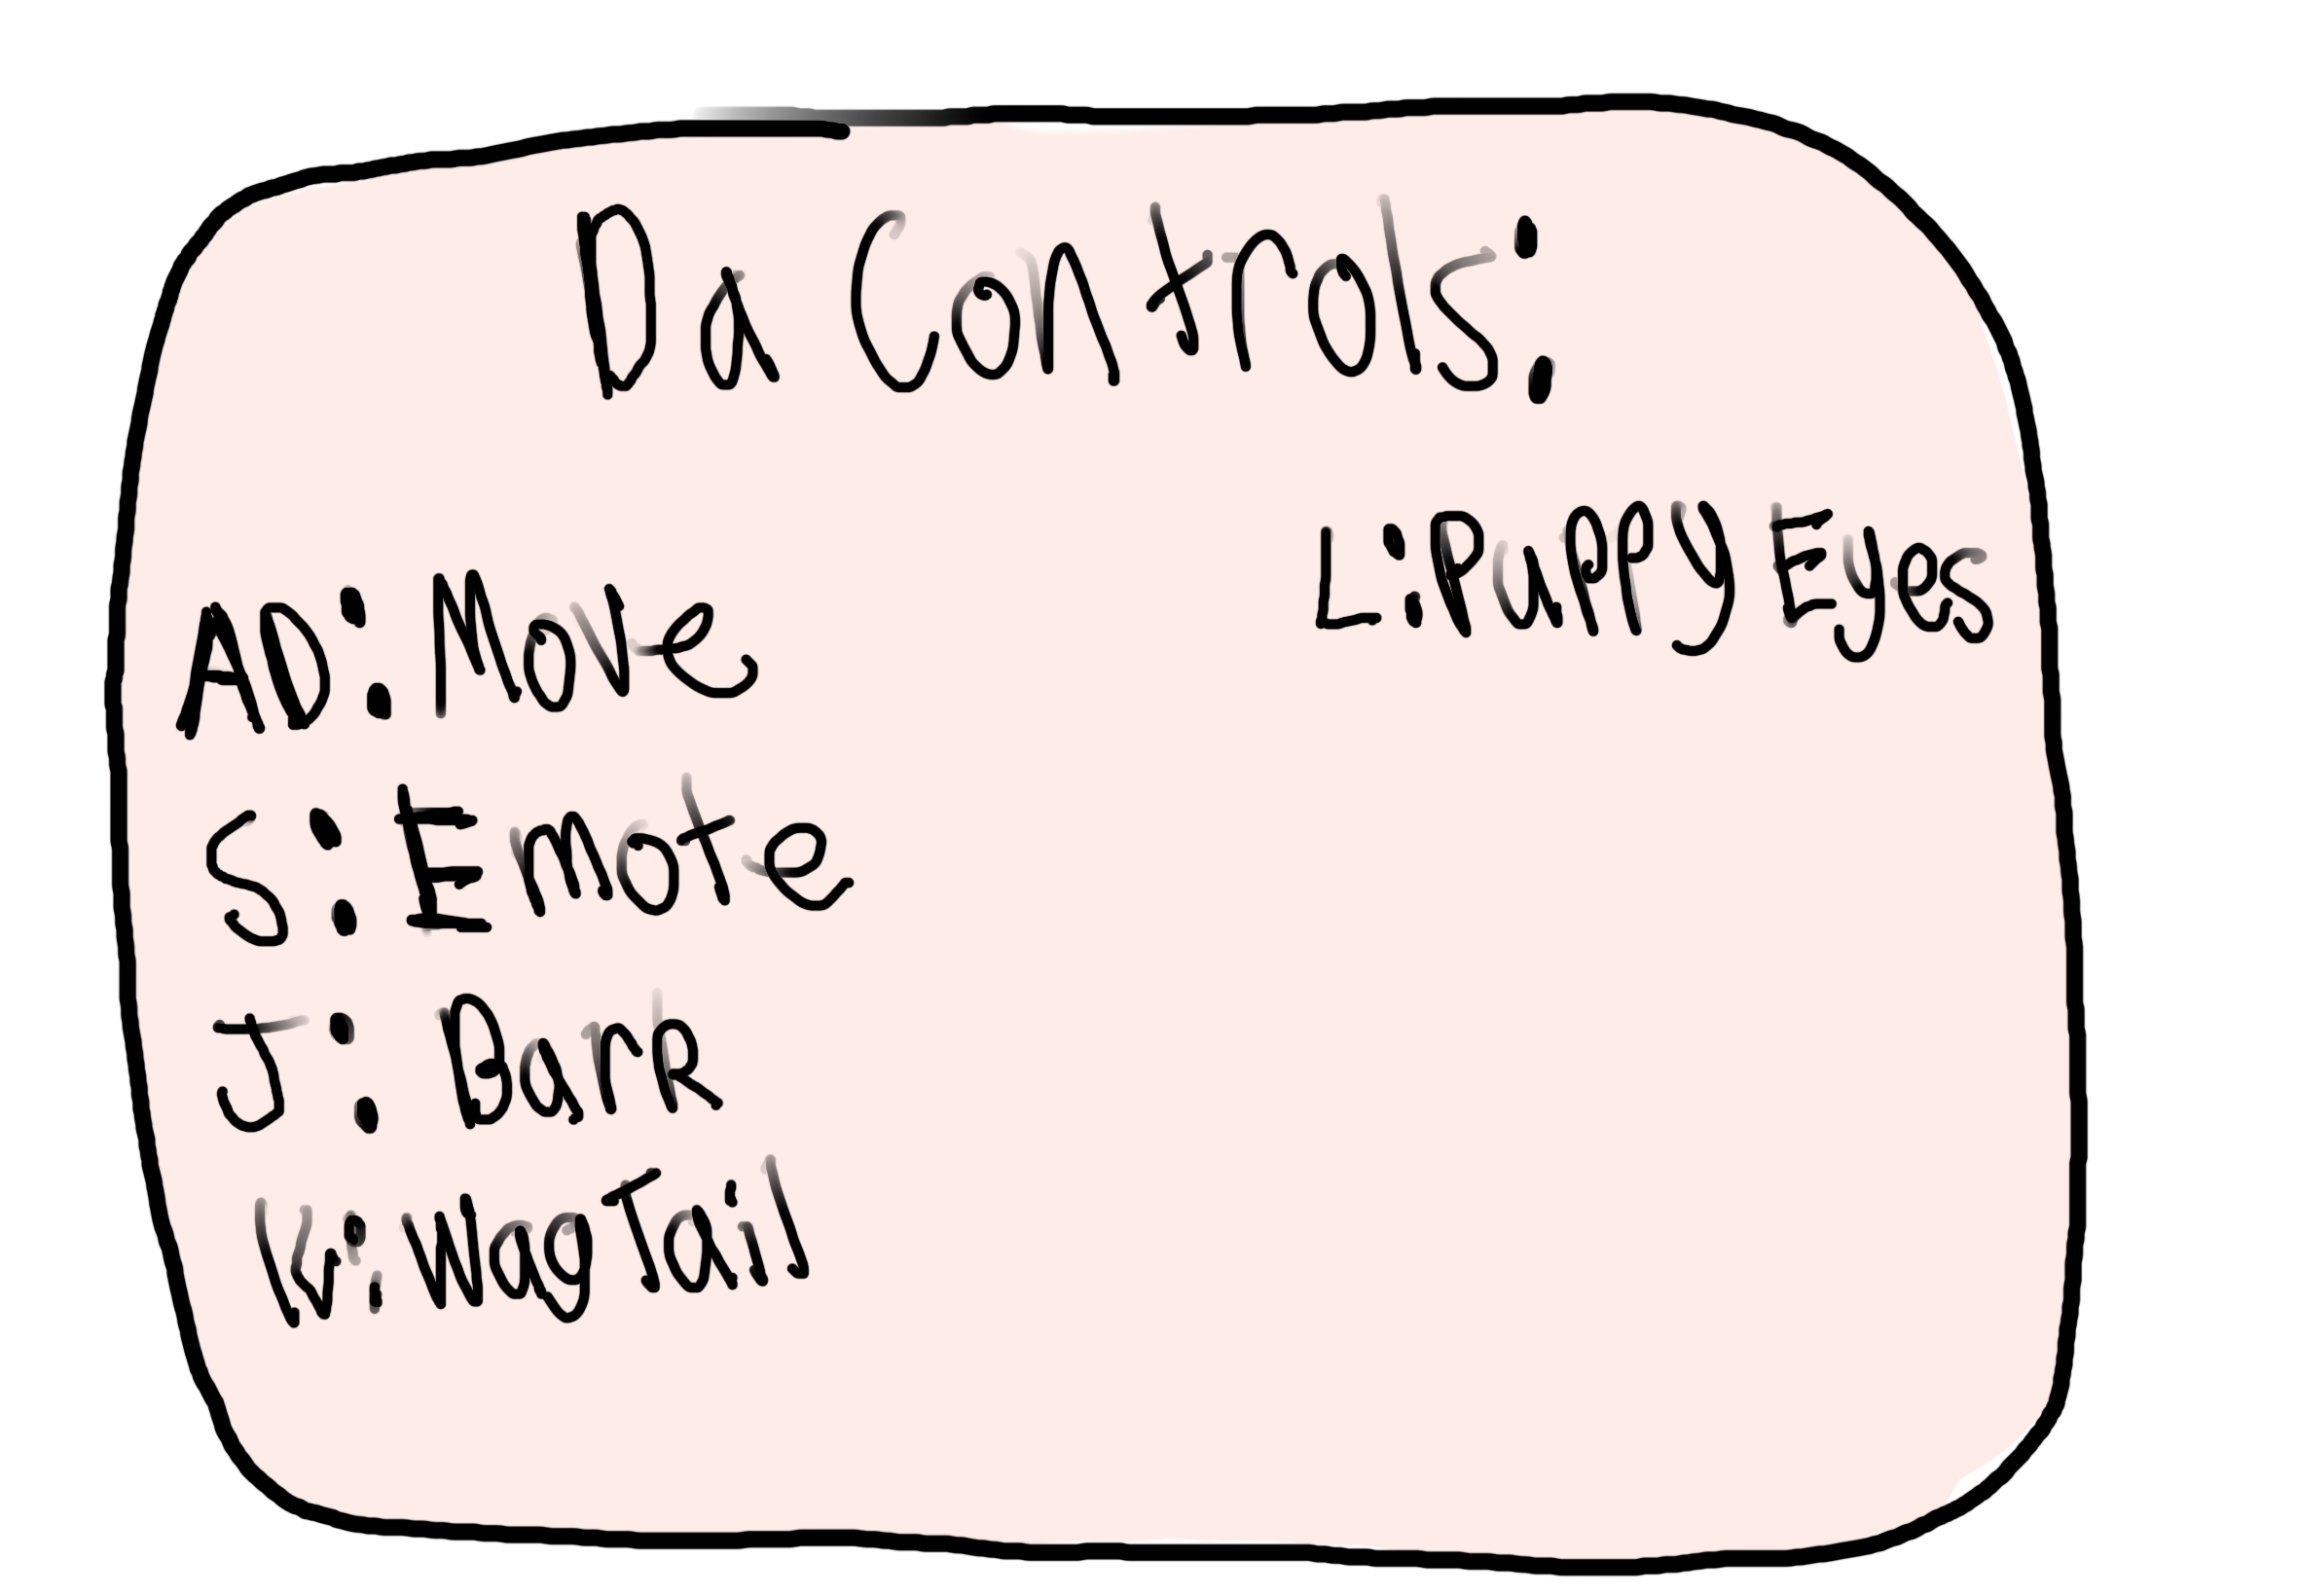 Da Controls:
AD: Move
S: Emote
J: Bark
K: Wag Tail
L: Puppy Eyes